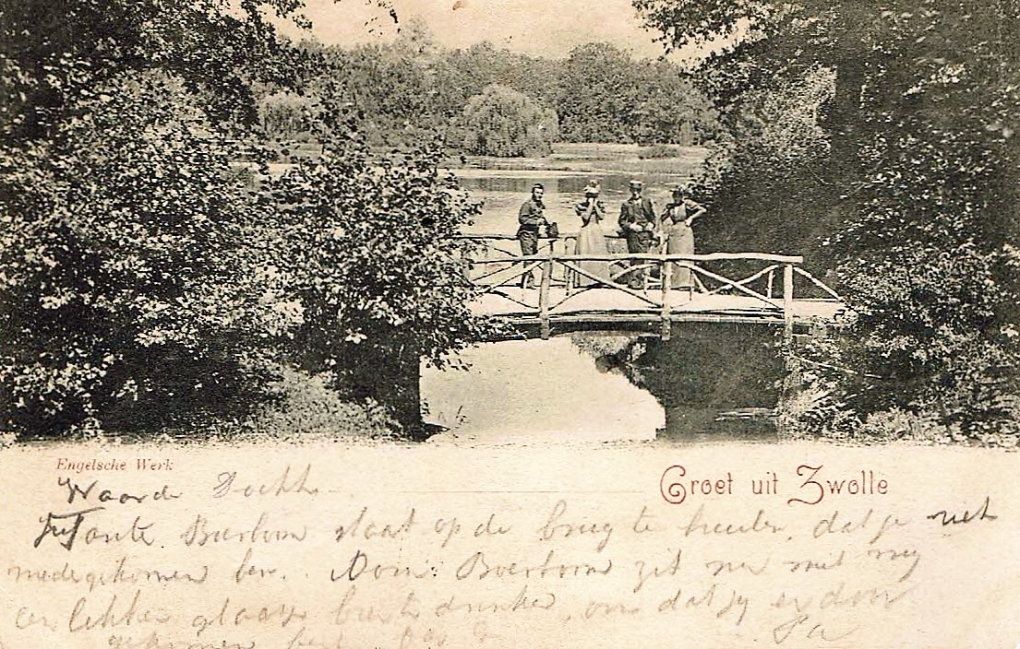 Engelsche Werk
Groet uit Zwolle
Waarde
Tante Boerboom staat op de brug te huilen, dat je niet
medegekomen ben. Oom Boerboom zit nu met mij
een lekker glaasje bier te drinken, om dat jij er door
gekomen bent. Pa